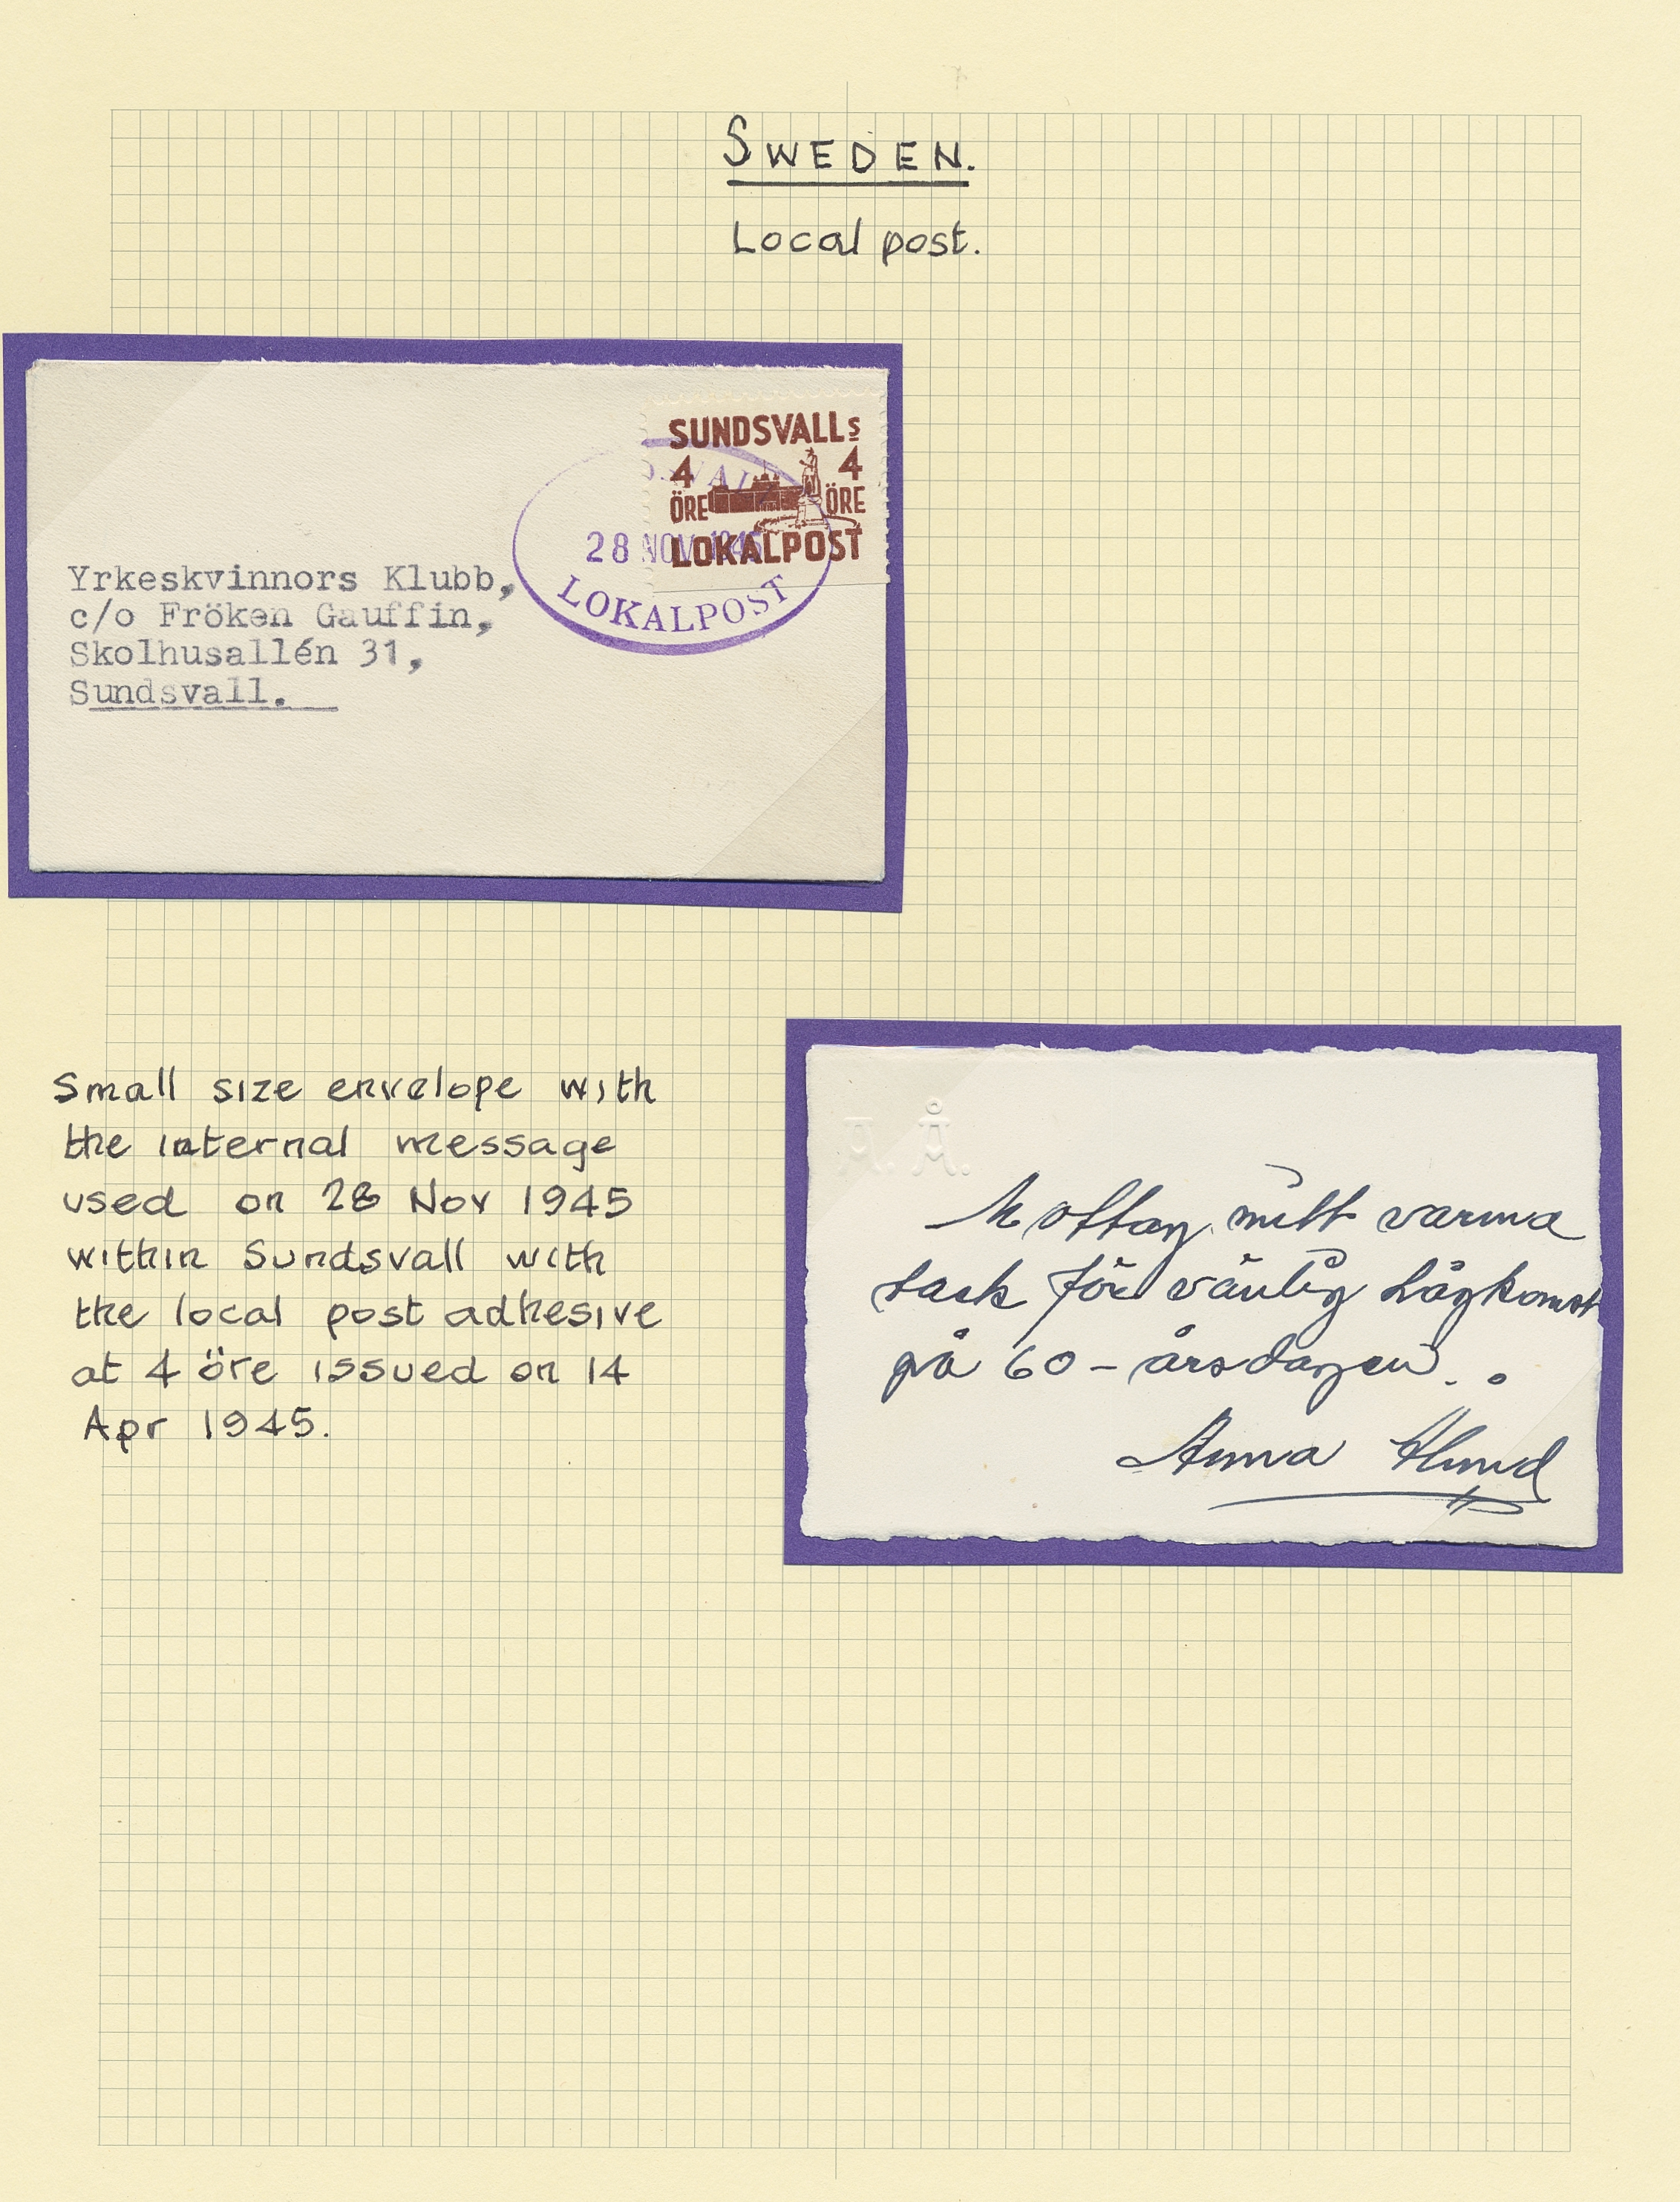 SWEDEN.
Local post.
SUNDSVALLS
4 4
ÖRE ÖRE
LOKALPOST
28 NOV 1945
LOKALPOST
Yrkeskvinnors Klubb,
c/o Fröken Gauffin,
Skolhusallén 31,
Sundsvall.
Small size envelope with
the internal message
used on 28 Nov 1945
within Sundsvall with
the local post adhesive
at 4 öre issued on 14
Apr 1945.
A. Å.
Mottag mitt varma
tack för vänlig hågkomst
på 60-årsdagen.
Anna